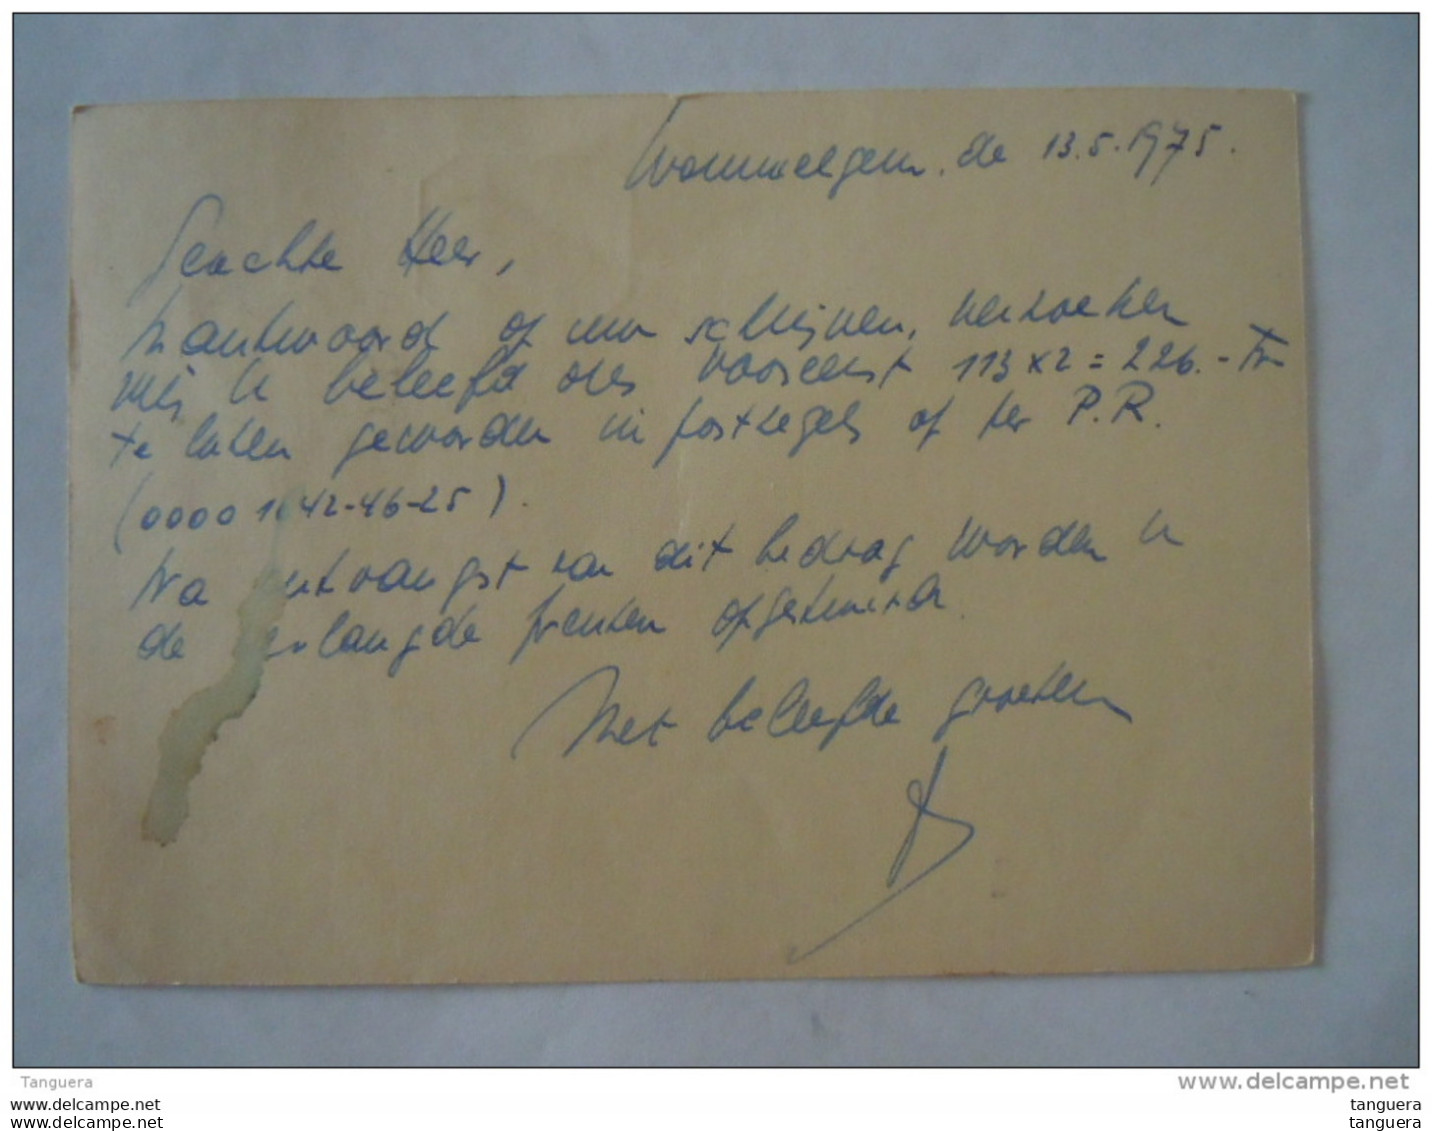 Wommelgem, de 13.5.1975.
Geachte Heer,
In antwoord op uw schrijven, verzoeken
wij U beleefd ons vooreerst 113 x 2 = 226.- Fr
te laten geworden in postzegels of per P.R.
(0000 1642-46-25).
Na ontvangst van dit bedrag worden U
de verlangde prenten opgestuurd.
Met beleefde groeten
Tanguera
www.delcampe.net
tanguera.com
tanguera
tanguera.com
tanguera